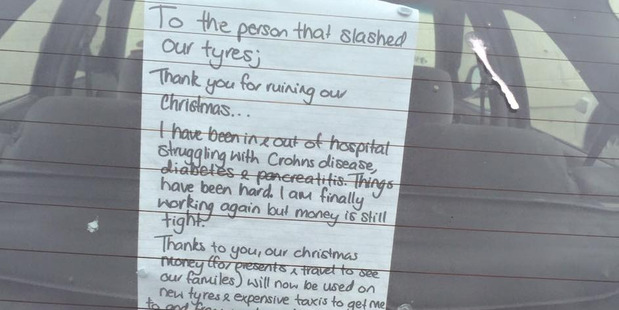 To the person that slashed
our tyres;
Thank you for ruining our
Christmas...
I have been in & out of hospital
struggling with Crohns disease,
diabetes & pancreatitis. Things
have been hard. I am finally
working again but money is still
tight.
Thanks to you, our christmas
money (for presents & travel to see
our familes) will now be used on
new tyres & expensive taxis to get me
to and from